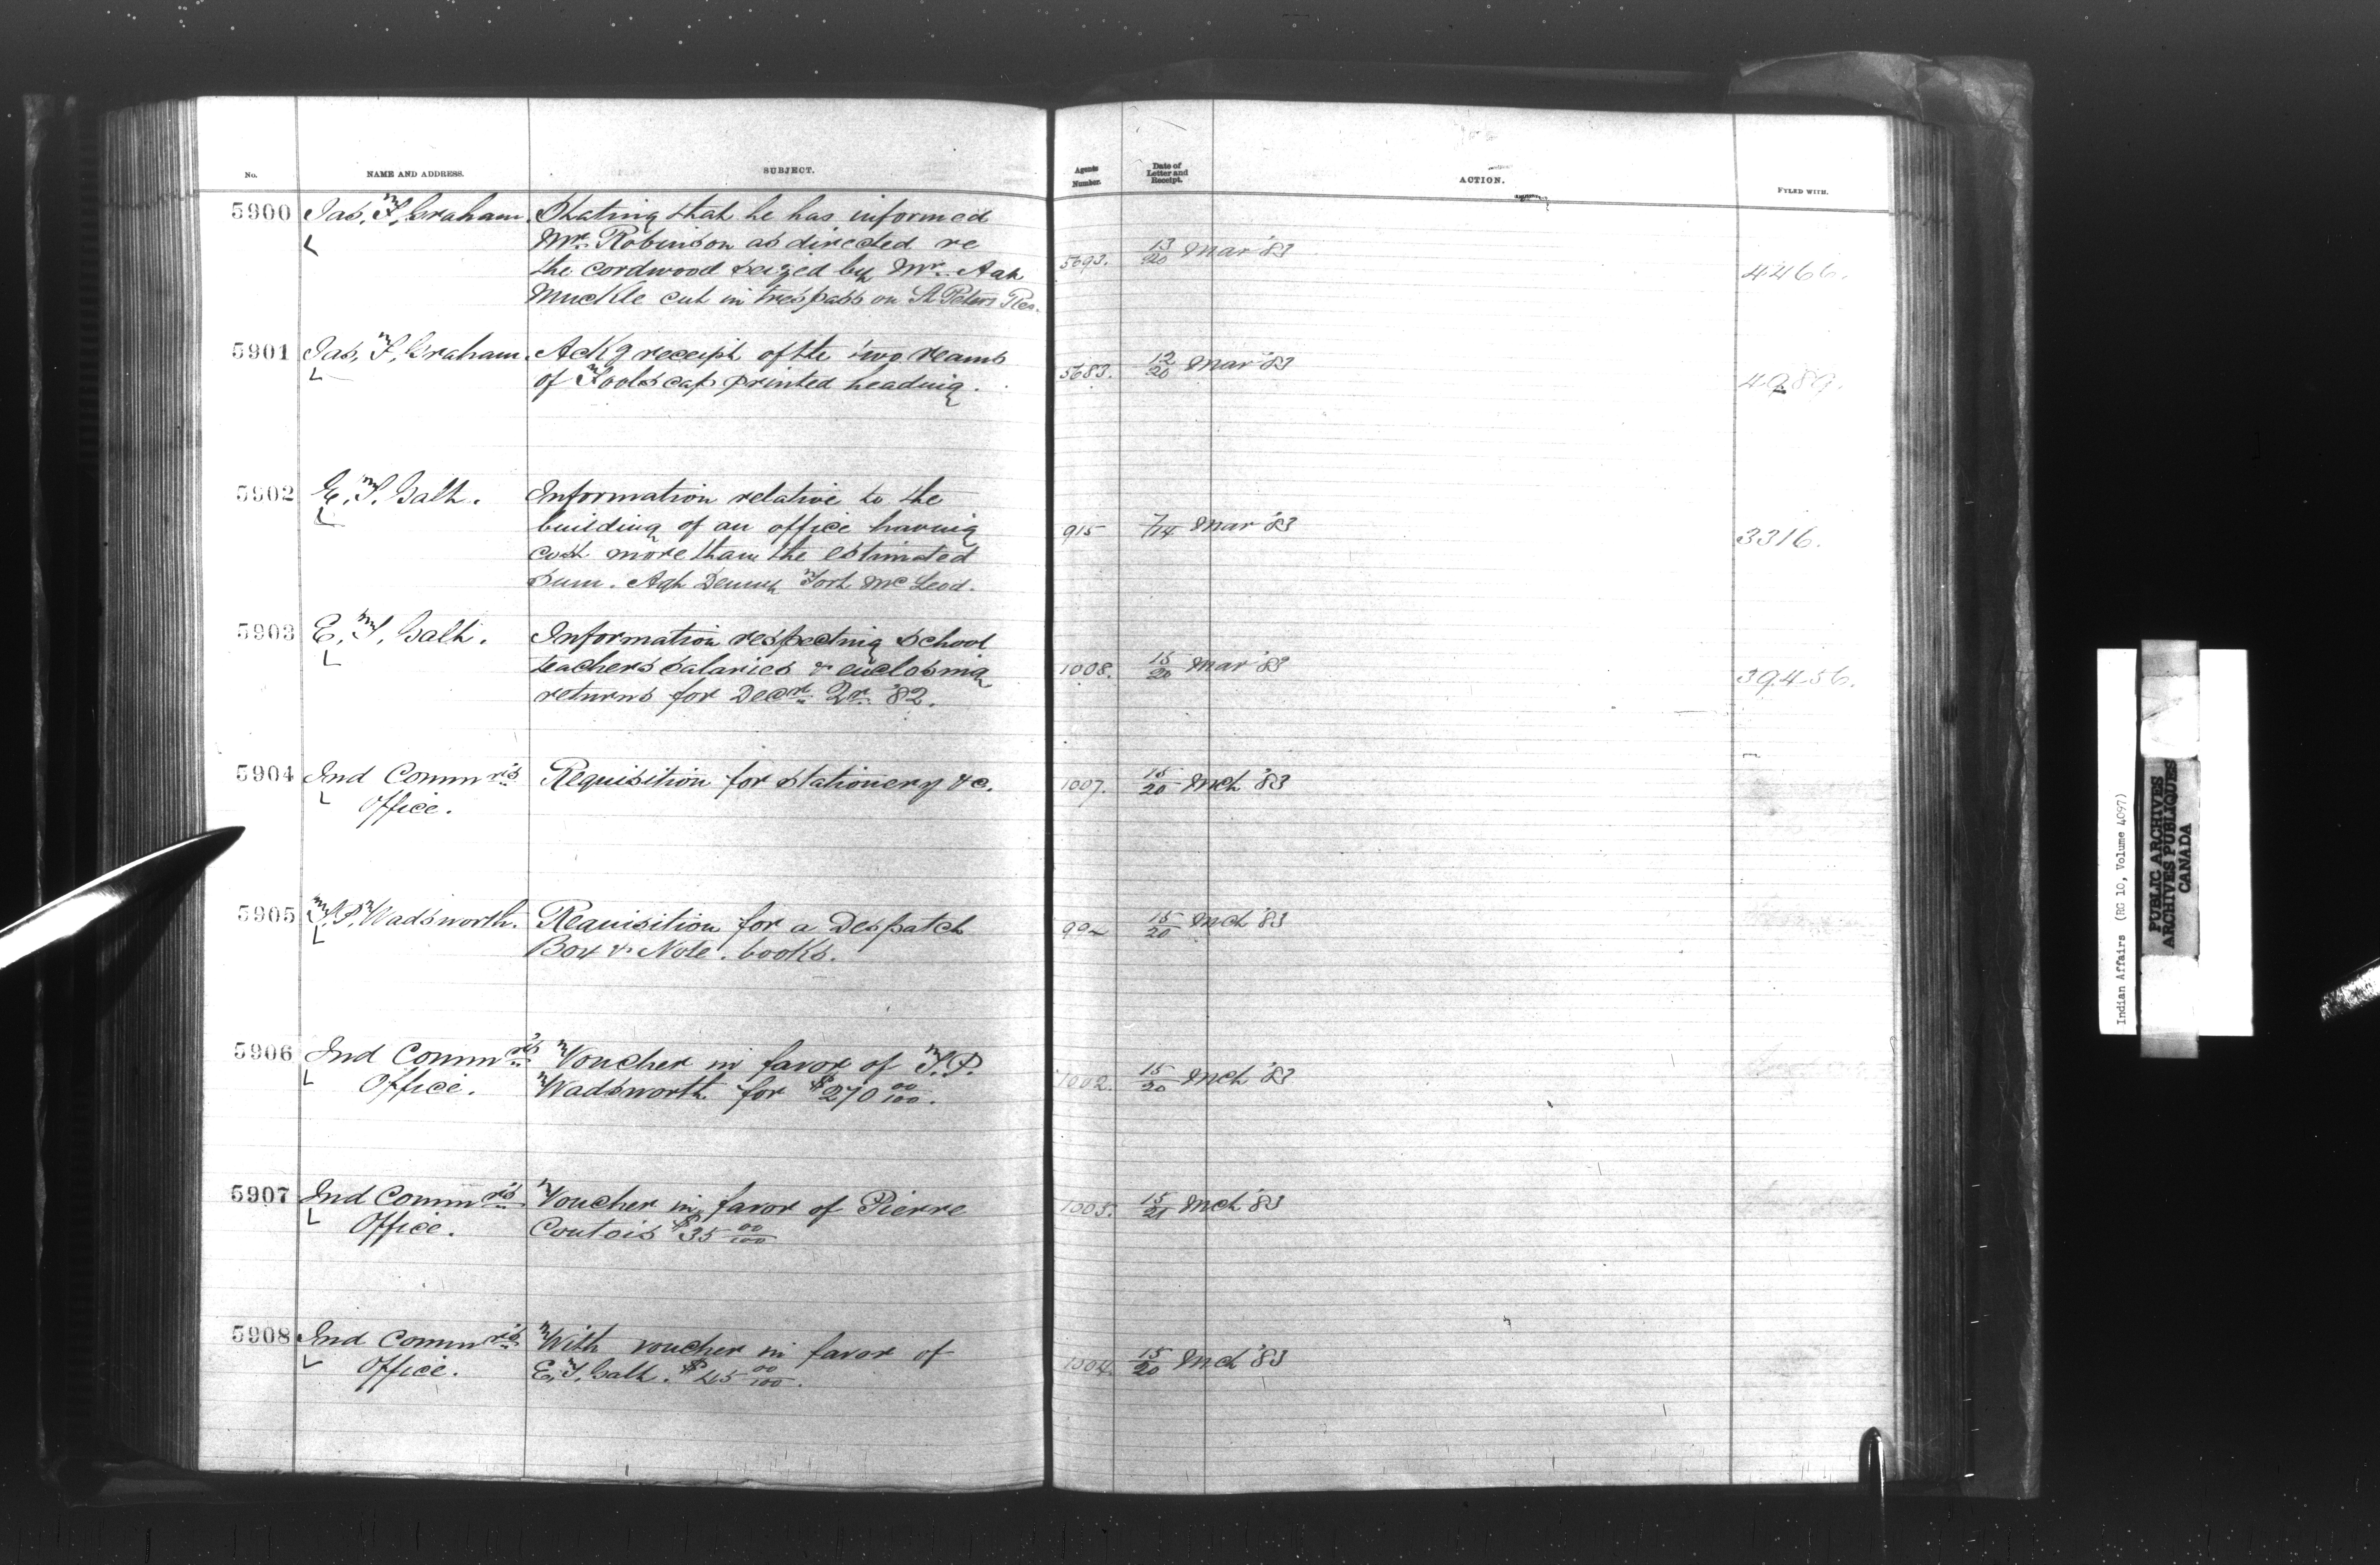 No.
NAME AND ADDRESS.
SUBJECT.
Agents Number.
Date of Letter and Receipt.
ACTION.
FYLED WITH.
5900 Jas. F. Graham Stating that he has informed
Mr. Robinson as directed re
the cordwood seized by Mr. Agt
Muckle cut in trespass on St Peters Res.
5693. 13/20 Mar '83 4466.
5901 Jas. F. Graham Ackg receipt of the two reams
of Foolscap printed heading.
5683. 12/20 Mar '83
5902 E. T. Galt. Information relative to the
building of an office having
cost more than the estimated
sum. Agt Denny Fort McLeod.
915 7/14 Mar '83 3316.
5903 E. T. Galt. Information respecting school
teachers salaries & enclosing
returns for Decr. Qr. '82.
1008. 15/20 Mar '83 39456.
5904 Ind Commr's Requisition for stationery &c.
Office.
1007. 15/20 Mch '83
5905 T. P. Wadsworth. Requisition for a Despatch
Box & Note books.
15/20 Mch '83
5906 Ind Commr's Voucher in favor of T. P.
Office. Wadsworth for $270 00/100.
1002. 15/20 Mch '83
5907 Ind Commr's Voucher in favor of Pierre
Office. Coutois $35 00/100
1005. 15/21 Mch '83
5908 Ind Commr's With voucher in favor of
Office. E. T. Galt. $45 00/100.
1004. 15/20 Mch '83
Indian Affairs (RG 10, Volume 4097)
PUBLIC ARCHIVES
ARCHIVES PUBLIQUES
CANADA